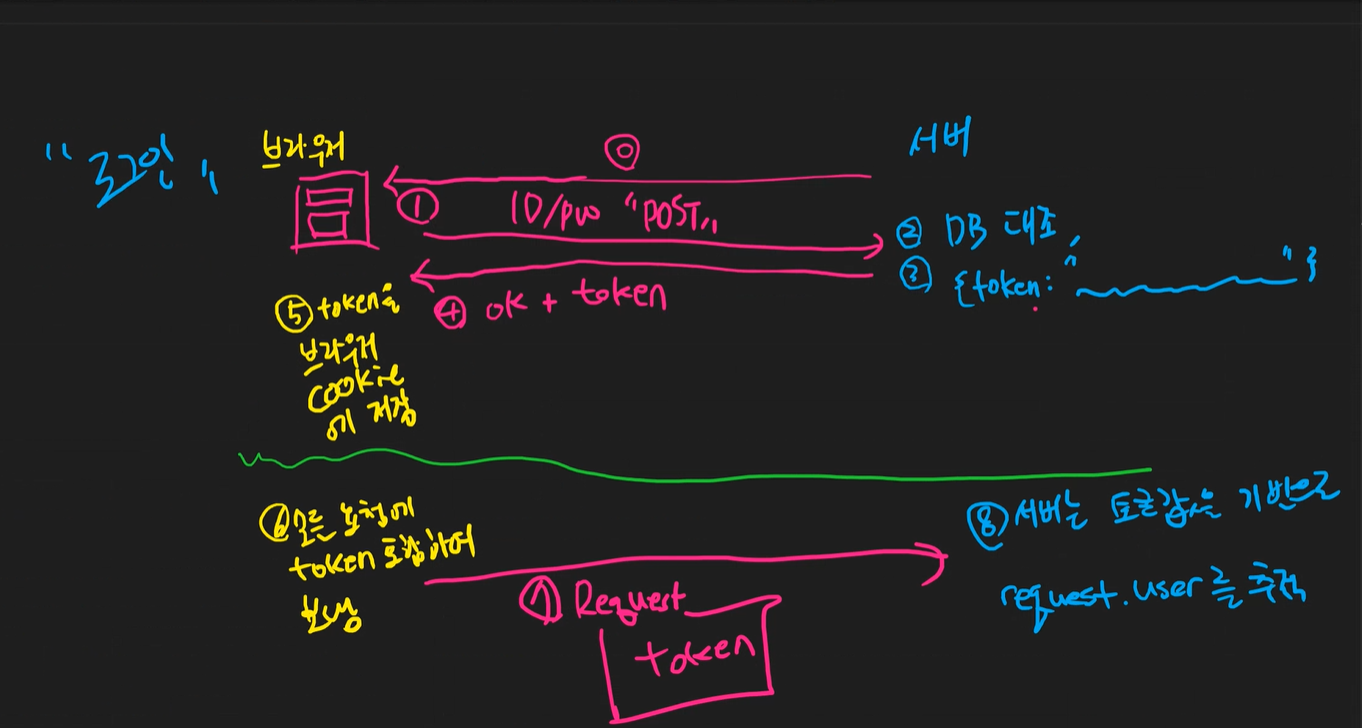 "로그인"
브라우저
서버
⓪
① ID/pw "POST"
② DB 대조
③ {token: " "}
④ ok + token
⑤ token을
브라우저
cookie
에 저장
⑥ 모든 요청에
token 포함하여
보냄
⑦ Request
token
⑧ 서버는 토큰값을 기반으로
request.user를 추적